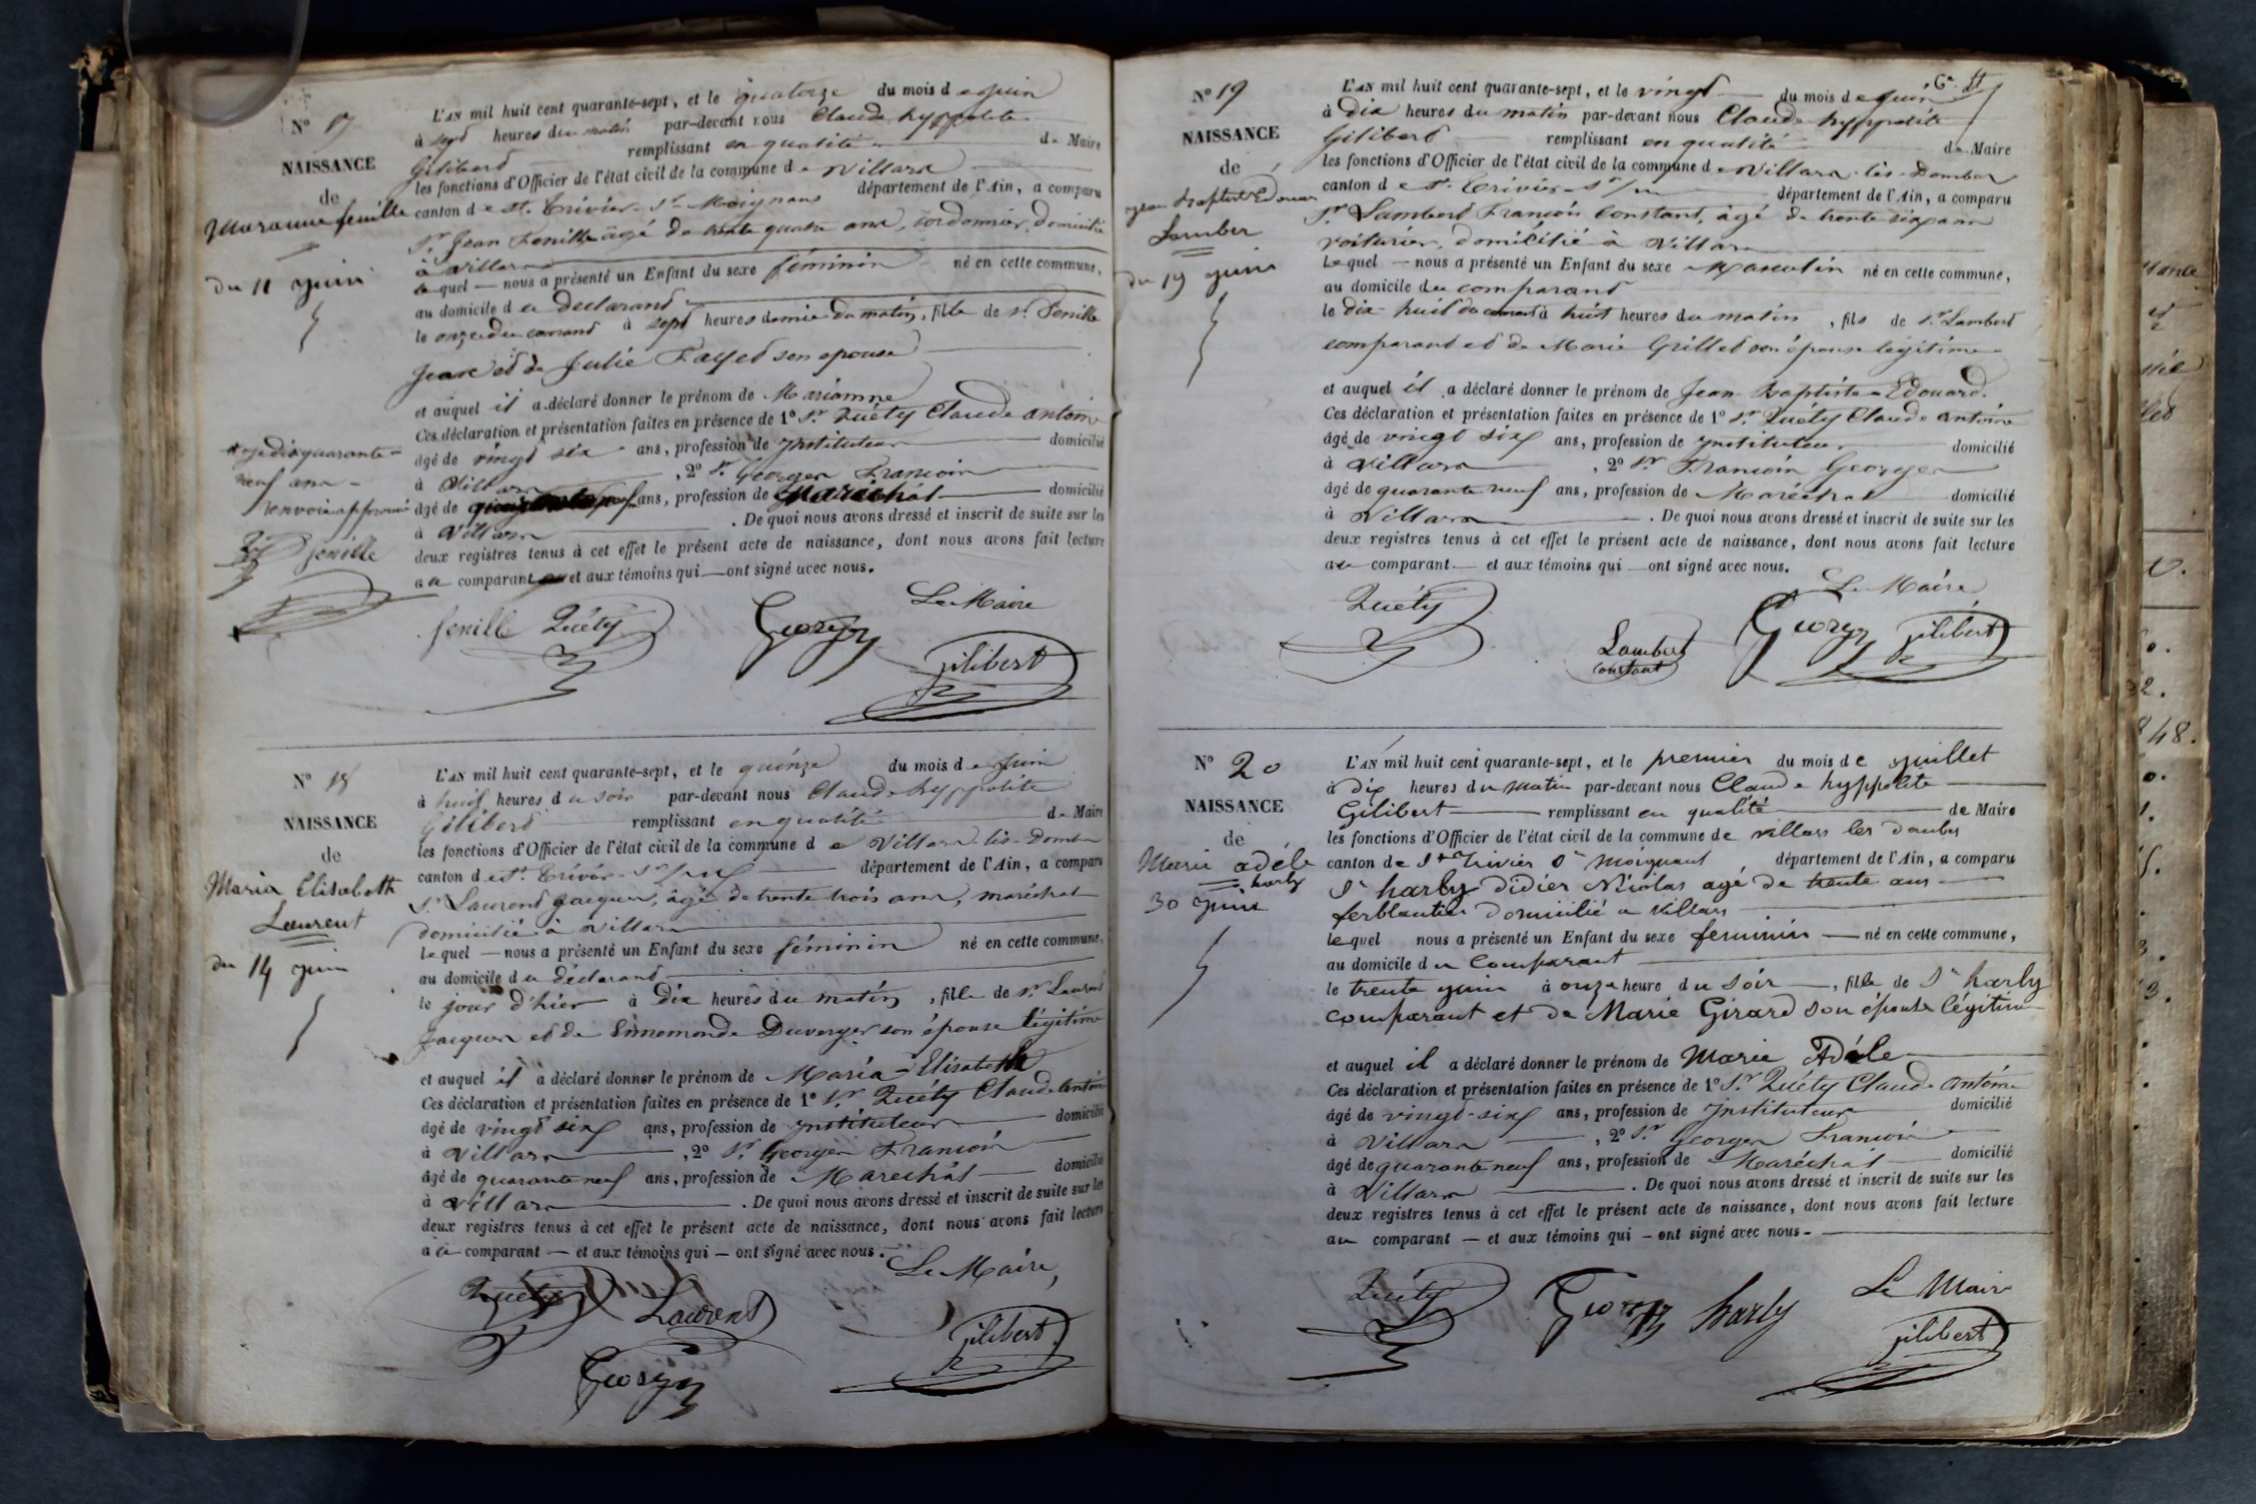 N° 17
NAISSANCE
de
Marianne fenille
du 11 juin
L'AN mil huit cent quarante-sept, et le quatorze du mois de juin
à sept heures du matin par-devant nous Claude hyppolite
Gilibert remplissant en qualité de Maire
les fonctions d'Officier de l'état civil de la commune de Villars
canton de St. Trivier St. Moignans département de l'Ain, a comparu
Sr. Jean Fenille âgé de trente quatre ans, cordonnier, domicilié
à Villars
lequel — nous a présenté un Enfant du sexe féminin né en cette commune,
au domicile du déclarant
le onze du courant à sept heures demie du matin, fille de Sr. Fenille
Jean et de Julie Fayet son épouse
et auquel il a déclaré donner le prénom de Marianne
Ces déclaration et présentation faites en présence de 1° Sr. Quéty Claude antoine
âgé de vingt six ans, profession de Instituteur domicilié
à Villars, 2° Sr. Georges Francois
âgé de ans, profession de Maréchal domicilié
à Villars. De quoi nous avons dressé et inscrit de suite sur les
deux registres tenus à cet effet le présent acte de naissance, dont nous avons fait lecture
au comparant et aux témoins qui — ont signé avec nous.
quarante
neuf ans
renvoi approuvé
fenille
Le Maire
fenille Quéty Georges
Gilibert
N° 18
NAISSANCE
de
Maria Elisabeth
Laurent
du 14 juin
L'AN mil huit cent quarante-sept, et le quinze du mois de juin
à huit heures du soir par-devant nous Claude hyppolite
Gilibert remplissant en qualité de Maire
les fonctions d'Officier de l'état civil de la commune de Villars-les-Dombes
canton de St. Trivier Sr département de l'Ain, a comparu
Sr. Laurent Jacques, âgé de trente trois ans, maréchal
domicilié à Villars
lequel — nous a présenté un Enfant du sexe féminin né en cette commune,
au domicile du déclarant
le jour d'hier à dix heures du matin, fille de Sr. Laurent
Jacques et de Ennemonde Duverger son épouse légitime
et auquel il a déclaré donner le prénom de Maria-Elisabeth
Ces déclaration et présentation faites en présence de 1° Sr. Quéty Claude antoine
âgé de vingt six ans, profession de Instituteur domicilié
à Villars, 2° Sr. Georges Francois
âgé de quarante neuf ans, profession de Maréchal domicilié
à Villars. De quoi nous avons dressé et inscrit de suite sur les
deux registres tenus à cet effet le présent acte de naissance, dont nous avons fait lecture
au comparant — et aux témoins qui — ont signé avec nous.
Le Maire,
Quéty Laurent
Gilibert
Georges
N° 19
NAISSANCE
de
Jean Baptiste Edouard
Lambert
du 19 juin
L'AN mil huit cent quarante-sept, et le vingt du mois de juin
à dix heures du matin par-devant nous Claude hyppolite
Gilibert remplissant en qualité de Maire
les fonctions d'Officier de l'état civil de la commune de Villars-les-Dombes
canton de St. Trivier Sr département de l'Ain, a comparu
Sr. Lambert François Constant, âgé de trente six ans
voiturier, domicilié à Villars
lequel — nous a présenté un Enfant du sexe Masculin né en cette commune,
au domicile du comparant
le dix-huit du courant à huit heures du matin, fils de Sr. Lambert
comparant et de Marie Grillet son épouse légitime
et auquel il a déclaré donner le prénom de Jean-Baptiste-Edouard.
Ces déclaration et présentation faites en présence de 1° Sr. Quéty Claude antoine
âgé de vingt six ans, profession de Instituteur domicilié
à Villars, 2° Sr Francois Georges
âgé de quarante neuf ans, profession de Maréchal domicilié
à Villars. De quoi nous avons dressé et inscrit de suite sur les
deux registres tenus à cet effet le présent acte de naissance, dont nous avons fait lecture
au comparant — et aux témoins qui — ont signé avec nous.
Le Maire
Quéty Georges Gilibert
Lambert
constant
N° 20
NAISSANCE
de
Marie adéle
harly
30 juin
L'AN mil huit cent quarante-sept, et le premier du mois de juillet
à dix heures du matin par-devant nous Claude hyppolite
Gilibert remplissant en qualité de Maire
les fonctions d'Officier de l'état civil de la commune de villars les dombes
canton de St Trivier Sr moignant département de l'Ain, a comparu
Sr harly didier Nicolas agé de trente ans
ferblantier domicilié a villars
lequel nous a présenté un Enfant du sexe feminin — né en cette commune,
au domicile du Comparant
le trente juin à onze heure du soir, fille de Sr harly
comparant et de Marie Girard son épouse légitime
et auquel il a déclaré donner le prénom de Marie Adéle
Ces déclaration et présentation faites en présence de 1° Sr Quéty Claude antoine
âgé de vingt-six ans, profession de Instituteur domicilié
à Villars, 2° Sr. Georges Francois
âgé de quarante neuf ans, profession de Maréchal domicilié
à Villars. De quoi nous avons dressé et inscrit de suite sur les
deux registres tenus à cet effet le présent acte de naissance, dont nous avons fait lecture
au comparant — et aux témoins qui — ont signé avec nous -
Le Maire
Quéty Georges harly
Gilibert